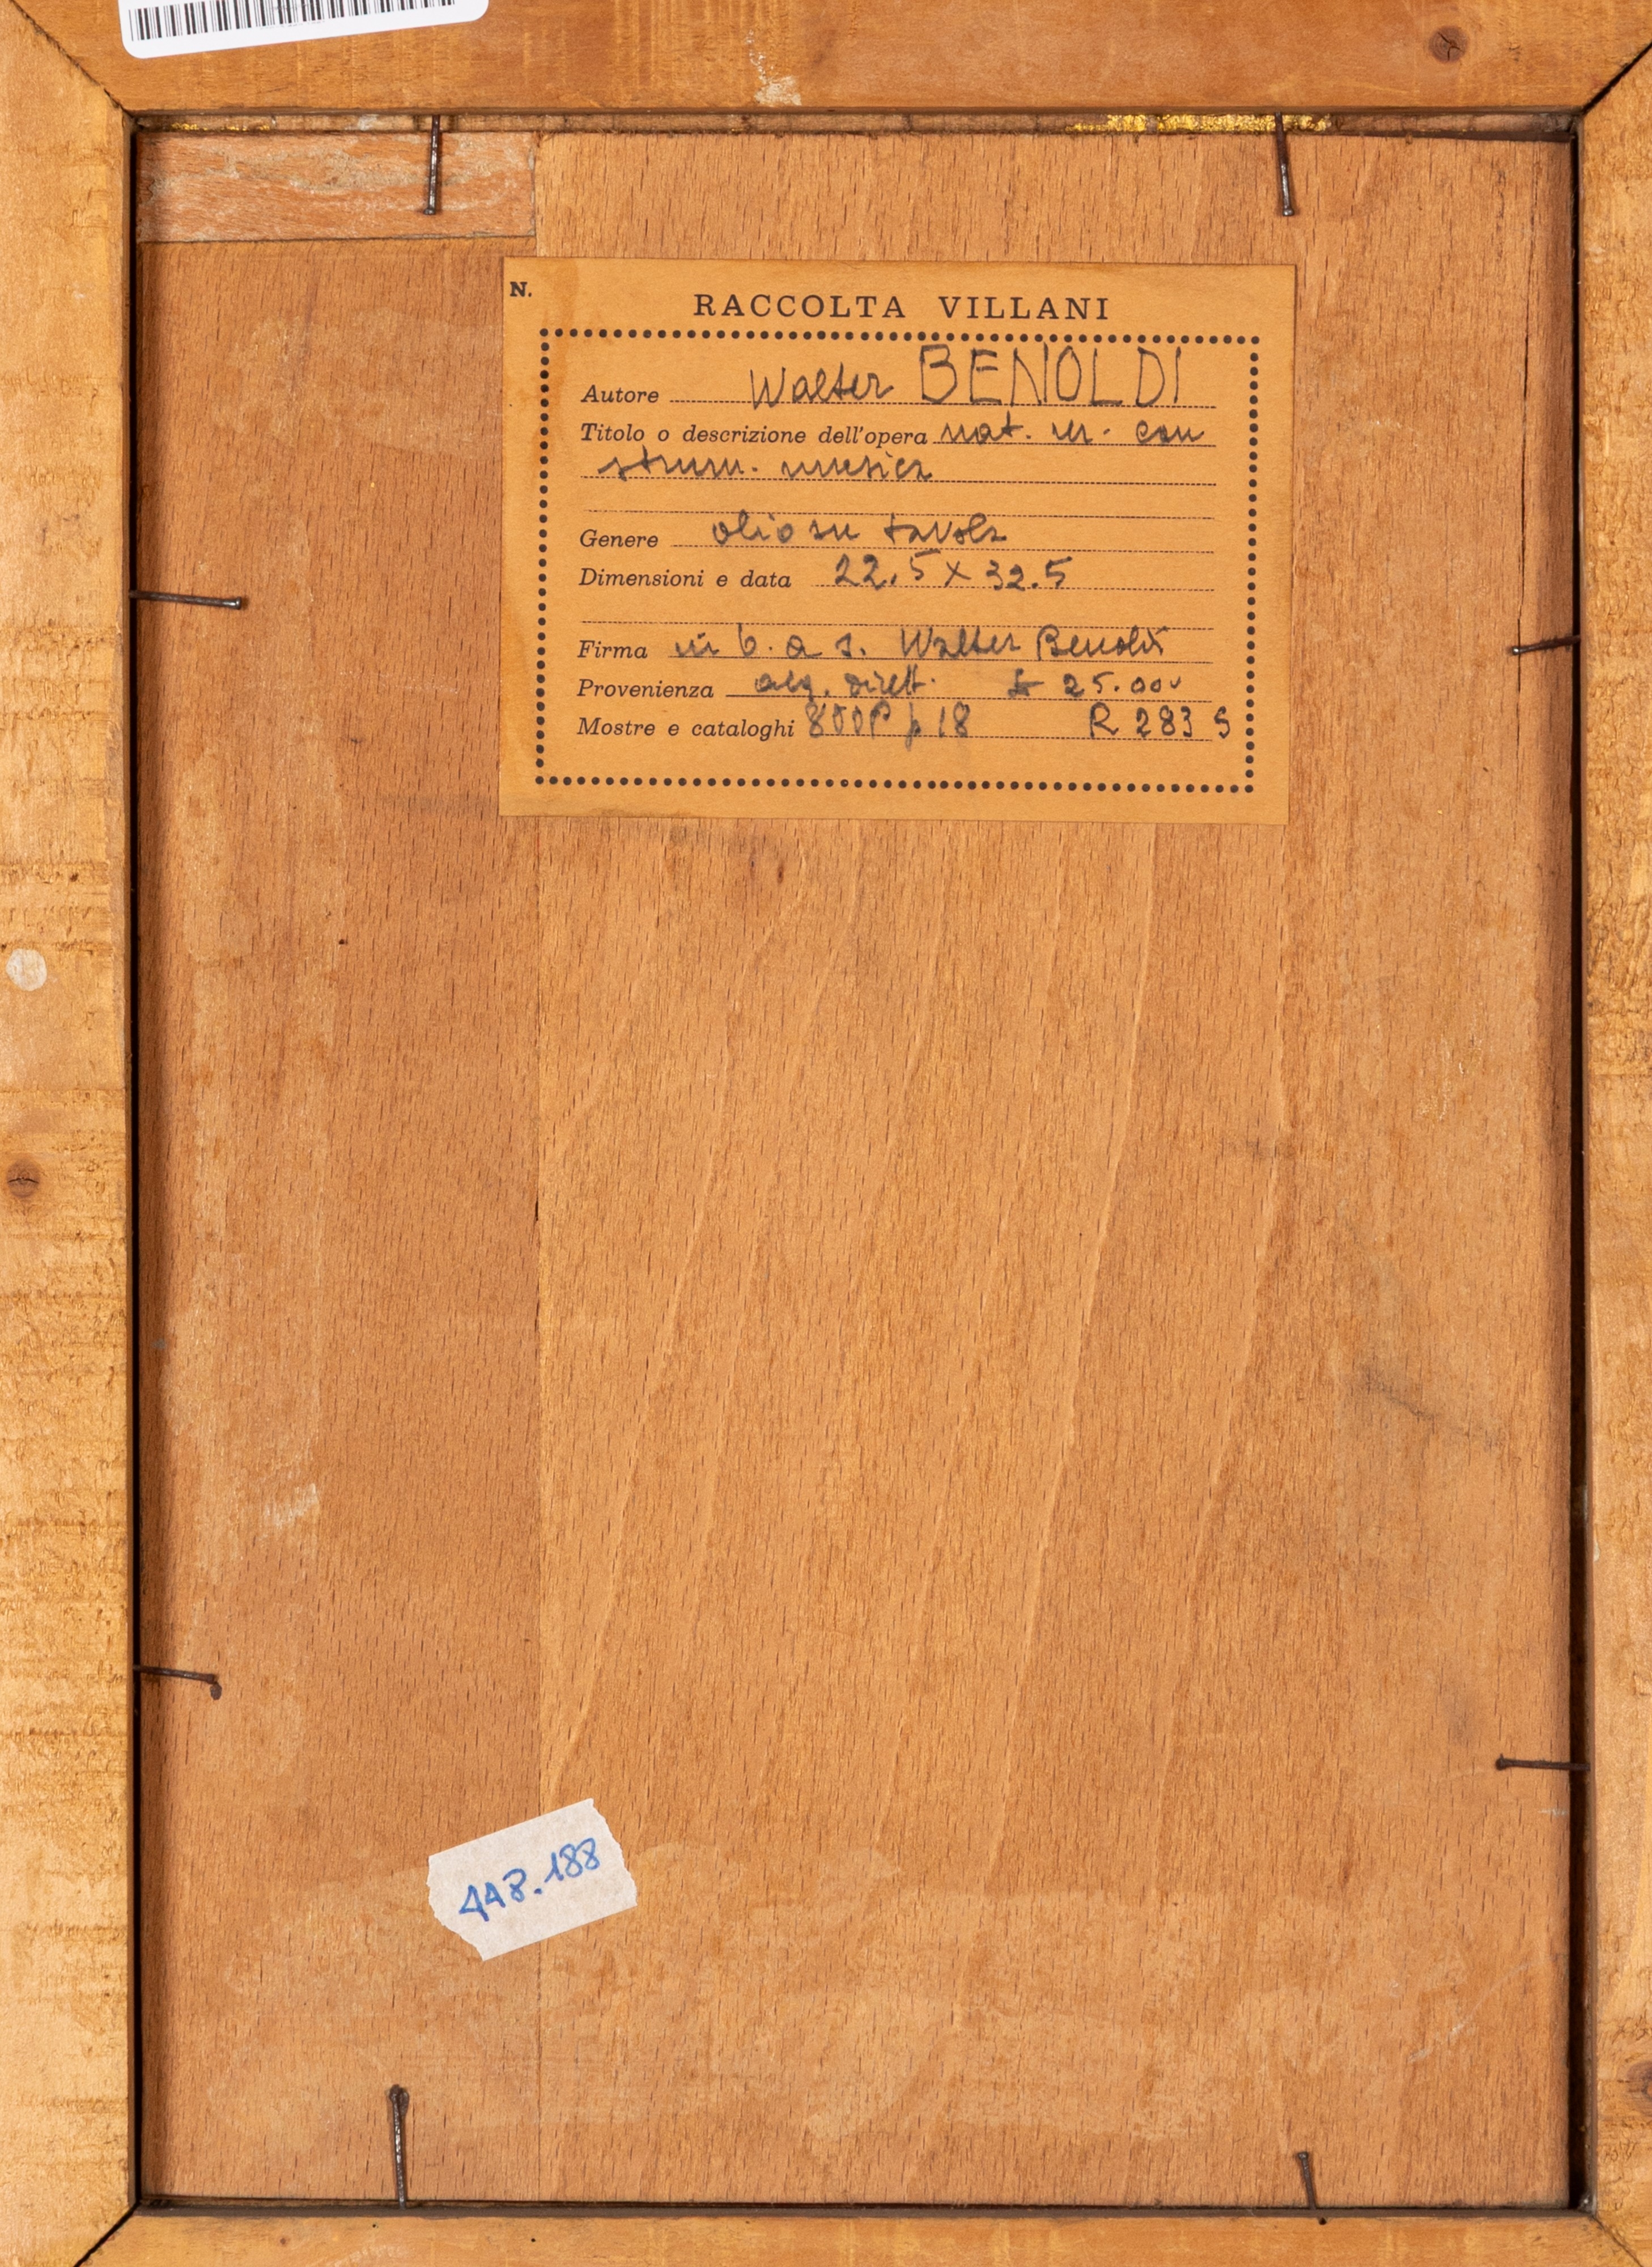 N.
RACCOLTA VILLANI
Autore Walter BENOLDI
Titolo o descrizione dell'opera nat. m. con
strum. musica
Genere olio su tavola
Dimensioni e data 22.5 x 32.5
Firma in b. a s. Walter Benoldi
Provenienza dirett. £ 25.000
Mostre e cataloghi p 18 R 283 S
448.188